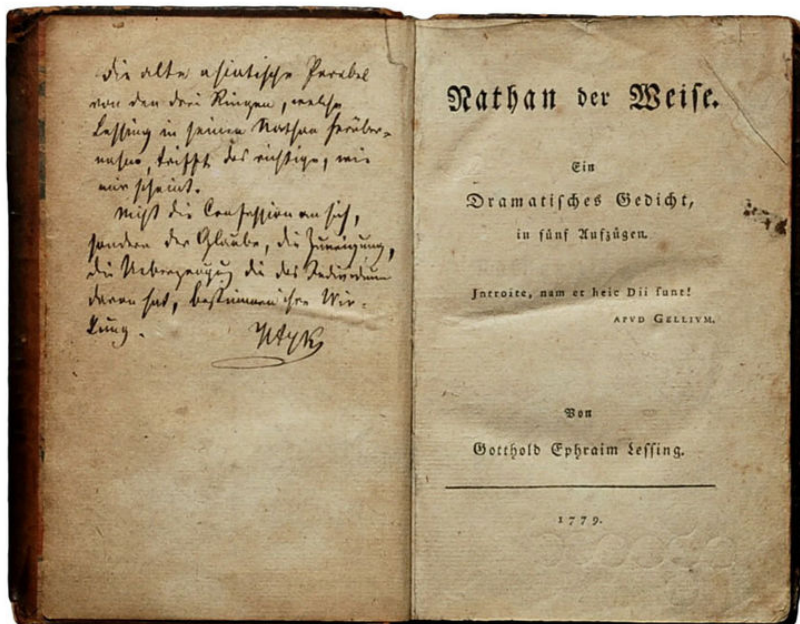 die alte asiatische Parabel
von den drei Ringen, welche
Lessing in seinen Nathan herüber-
nahm, trifft das richtige, wie
mir scheint.
Nicht die Confession an sich,
sondern der Glaube, die Zuneigung,
die Ueberzeugung die das Individuum
daran hat, bestimmen ihre Wir-
kung.
Nathan der Weiſe.
Ein
Dramatiſches Gedicht,
in fünf Aufzügen.
Introite, nam et heic Dii ſunt!
APVD GELLIVM.
Von
Gotthold Ephraim Leſſing.
1779.